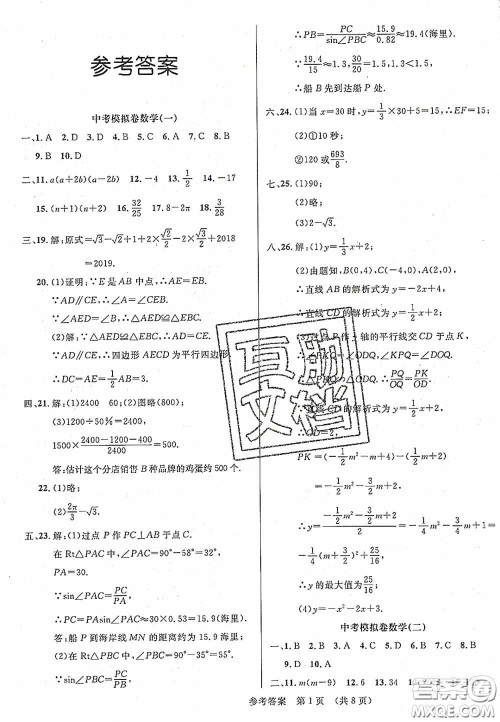 参考答案
中考模拟卷数学(一)
一、1. A 2. D 3. D 4. B 5. C 6. A 7. C 8. B
9. B 10. D
二、11. a(a+2b)(a-2b) 12. -4 13. 1/2 14. -17
15. (n+1)(n+2) 16. 32/25 17. 8-2π 18. 3/28
三、19. 解：原式=√3-√2+1+√2-√3+2018
=2019.
20. (1)证明：∵E是AB中点，∴AE=EB.
∵AD∥CE，∴∠A=∠BEC.
∵∠AED=∠B，∴△AED≌△EBC.
(2)解：∵△AED≌△EBC，∴AD=EC.
∵AD∥EC，∴四边形AECD为平行四边形.
∴DC=AE=1/2AB=3.
四、21. 解：(1)2400 60；(2)图略(800)；
(3)1200÷50%=2400，
1500×(2400-1200-400)/2400=500.
答：估计这个分店销售B种品牌的鸡蛋约500个.
22. (1)略；
(2)2π/3-√3.
五、23. 解：(1)过点P作PC⊥AB于点C.
在Rt△PAC中，∠PAC=90°-58°=32°，
在Rt△PBC中，∠PBC=90°-35°=55°，
∵sin∠PAC=PC/PA，
∴PC=PAsin∠PAC≈30×0.53=15.9(海里).
答：船P到海岸线MN的距离约为15.9海里.
(2)在Rt△PBC中，∵sin∠PBC=PC/PB，
∴PB=PC/sin∠PBC≈15.9/0.82≈19.4(海里).
∵19.4/15≈1.3，30/20=1.5，1.3<1.5，
∴船B先到达船P处.
六、24. (1)当x=30时，y=1/3×30+5=15，∴EF=15；
(2)①10；
②120或693/8.
七、25. (1)90；
(2)(3)略.
八、26. 解：(1)y=1/3x+2；
(2)由题知，B(0,4)，C(0,2)，
∴直线AB的解析式为y=-x+4，
∴直线CD的解析式为y=-2x+2，
轴的平行线交CD于点K，
∠PKQ=∠ODQ，∠KPQ=∠DOQ.
PQ/OQ=PK/OD.
的解析式为y=x+2，
∴OD=2.
PK=(-1/2m²-m+4)-(-1/2m+2)，
∴y=(-1/2m²-3/4m+1
-1/4(m+3/2)²+25/16，
∴y的最大值为25/16；
(4)y=-1/2x-2.
中考模拟卷数学(二)
一、1. B 2. B 3. C 4. A 5. A 6. C 7. C 8. B
9. D 10. A
二、11. m(m-9) 12. 6 13. 34
互助
文档
参考答案 第1页 (共8页)